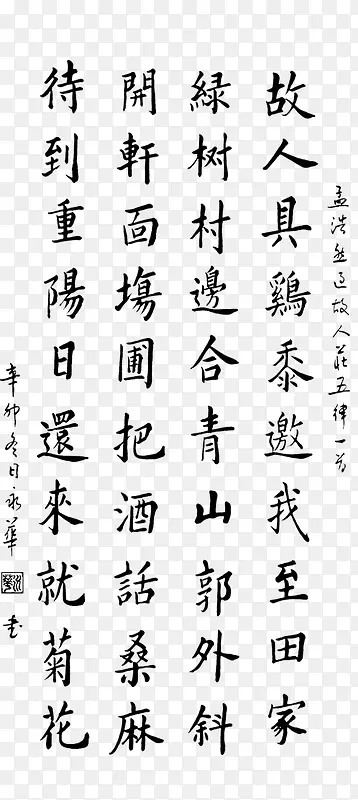 孟浩然過故人莊五律一首
故人具鷄黍邀我至田家
緑树村邊合青山郭外斜
開軒面場圃把酒話桑麻
待到重陽日還來就菊花
辛卯冬日永華
书